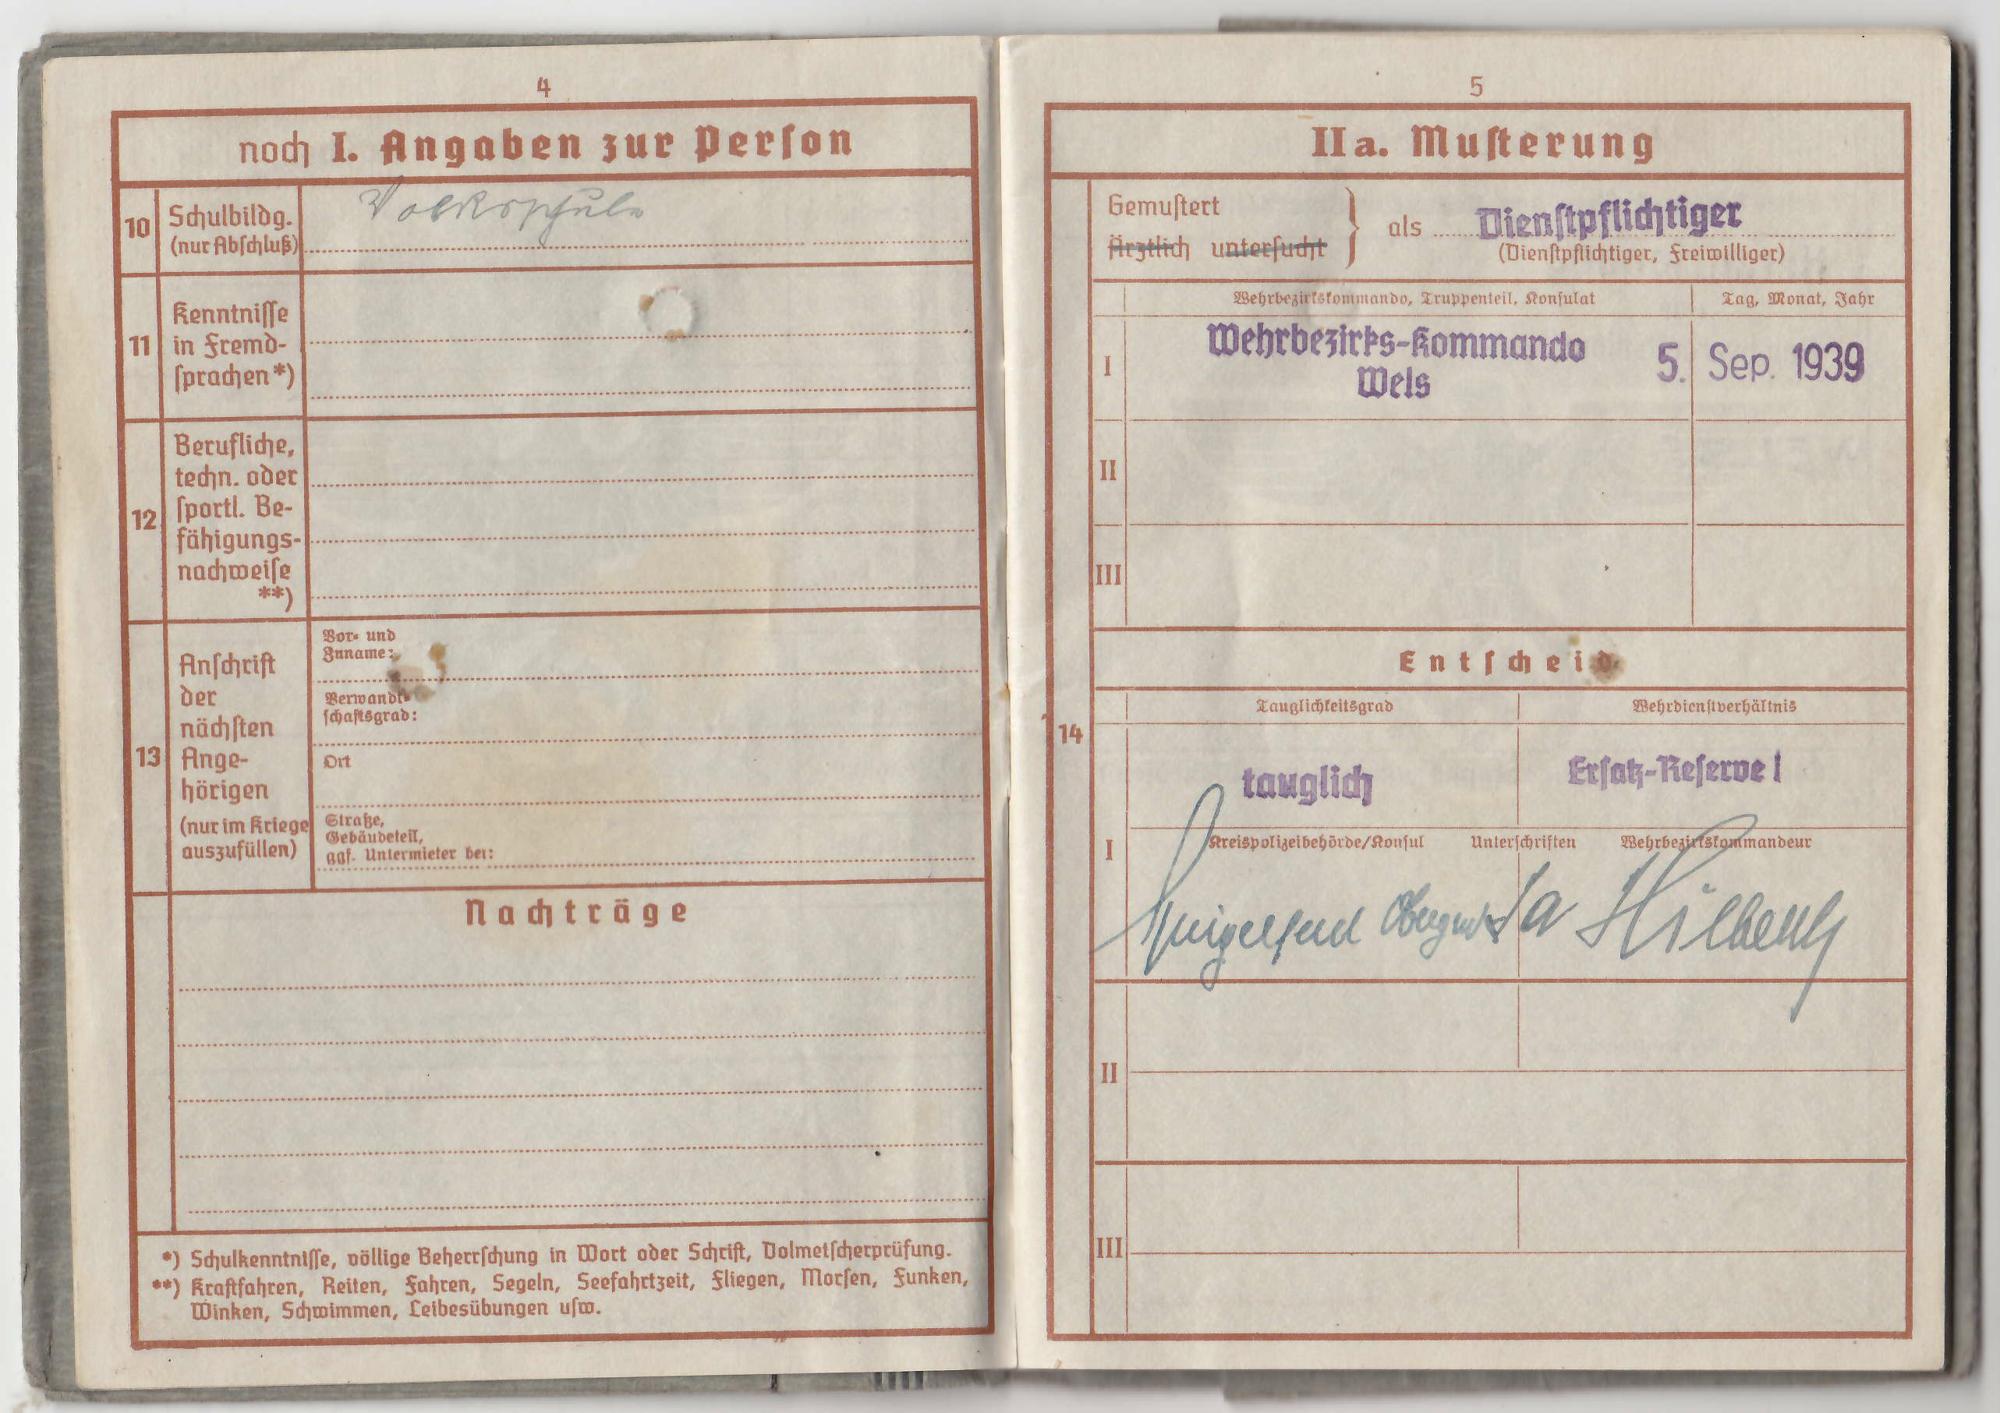 4
noch I. Angaben zur Person
10
Schulbildg.
(nur Abschluß)
Volksschule
11
Kenntnisse
in Fremd-
sprachen*)
12
Berufliche,
techn. oder
sportl. Be-
fähigungs-
nachweise
**)
13
Anschrift
der
nächsten
Ange-
hörigen
(nur im Kriege
auszufüllen)
Vor- und
Zuname:
Verwandt-
schaftsgrad:
Ort
Straße,
Gebäudeteil,
ggf. Untermieter bei:
Nachträge
*) Schulkenntnisse, völlige Beherrschung in Wort oder Schrift, Dolmetscherprüfung.
**) Kraftfahren, Reiten, Fahren, Segeln, Seefahrtzeit, Fliegen, Morsen, Funken,
Winken, Schwimmen, Leibesübungen usw.
5
IIa. Musterung
Gemustert
Ärztlich untersucht
als Dienstpflichtiger
(Dienstpflichtiger, Freiwilliger)
Wehrbezirkskommando, Truppenteil, Konsulat
Tag, Monat, Jahr
I
Wehrbezirks-Kommando
Wels
5. Sep. 1939
II
III
Entscheid
14
Tauglichkeitsgrad
Wehrdienstverhältnis
tauglich
Ersatz-Reserve I
I
Kreispolizeibehörde/Konsul Unterschriften Wehrbezirkskommandeur
II
III